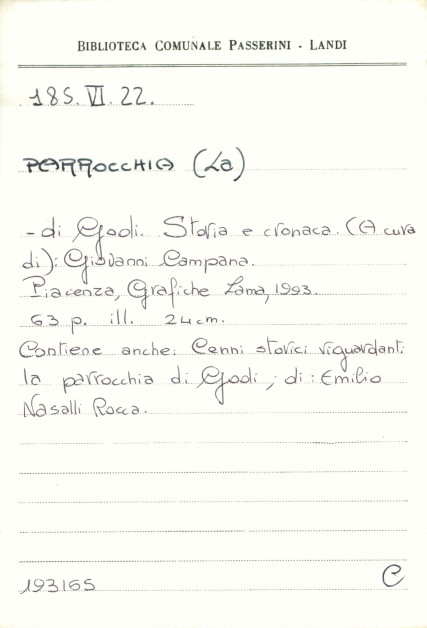 BIBLIOTECA COMUNALE PASSERINI - LANDI
185. VI. 22.
PARROCCHIA (La)
- di Godi. Storia e cronaca. (A cura
di): Giovanni Campana.
Piacenza, Grafiche Lama, 1993.
63 p. ill. 24 cm.
Contiene anche: Cenni storici riguardanti
la parrocchia di Godi ; di : Emilio
Nasalli Rocca.
193165 C